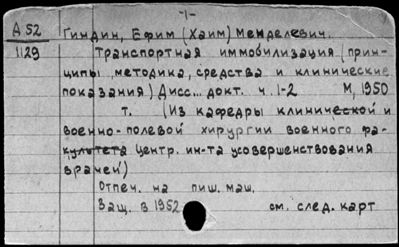 -1-
А 52 Гиндин, Ефим (Хаим) Менделевич.
1129 Транспортная иммобилизация (прин-
ципы, методика, средства и клинические
показания) Дисс... докт. ч. 1-2 М, 1950
т. (Из кафедры клинической и
военно-полевой хирургии военного фа-
культета Центр. ин-та усовершенствования
врачей)
Отпеч. на пиш. маш.
Защ. в 1952
см. след. карт